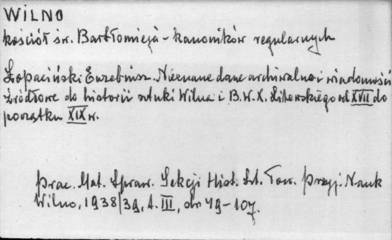 WILNO
kościół św. Bartłomieja - kanoników regularnych
Łopaciński Euzebiusz. Nieznane dane archiwalne i wiadomości
źródłowe do historii sztuki Wilna i B.W.X. Litewskiego od XVII do
początku XIX w.
Prac. Mat. Spraw. Sekcji Hist. Szt. Tow. Przyj. Nauk
Wilno, 1938/39, t. III, str 49-107.